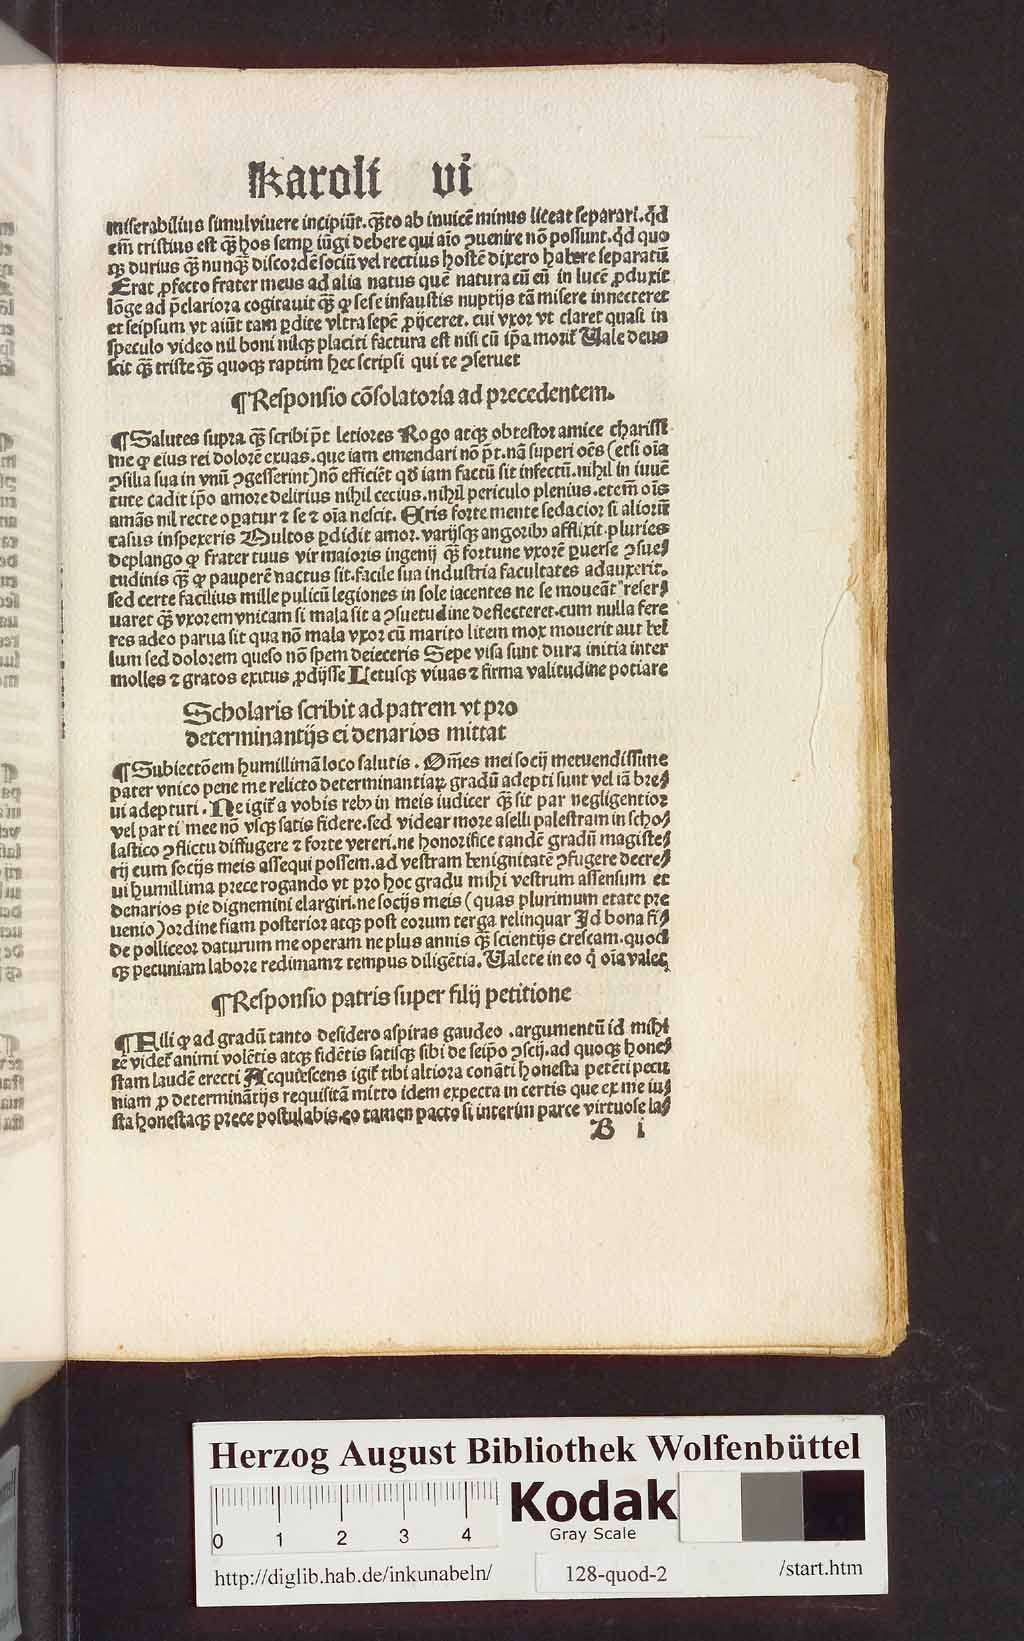 Karoli vi
miserabilius simulviuere incipiūt. quāto ab inuicē minus liceat separari. qd
em̄ tristius est qꝫ hos semꝑ iūgi debere qui aīo ꝯuenire nō possunt. qd quo
qꝫ durius qꝫ nunqꝫ discordē sociū vel rectius hostē dixero habere separatū
Erat ꝓfecto frater meus ad alia natus quē natura cū eū in lucē ꝓduxit
lōge ad p̄clariora cogitauit qꝫ ꝙ sese infaustis nuptijs tā misere innecteret
et seipsum vt aiūt tam ꝑdite vltra sepē ꝓijceret. cui vxor vt claret quasi in
speculo video nil boni nilqꝫ placiti factura est nisi cū ip̄a morit᷑ Uale deus
scit qꝫ triste qꝫ quoqꝫ raptim hec scripsi qui te ꝯseruet
¶Responsio cōsolatoria ad precedentem.
¶Salutes supra qꝫ scribi p̄t letiores Rogo atqꝫ obtestor amice charissi
me ꝙ eius rei dolorē exuas. que iam emendari nō p̄t. nā superi oēs (etsi oīa
ꝯsilia sua in vnū ꝯgesserint) nō efficiēt qd iam factū sit infectū. nihil in iuuē
tute cadit ip̄o amore delirius nihil cecius. nihil periculo plenius. etem̄ oīs
amās nil recte oꝑatur ⁊ se ⁊ oīa nescit. Eris forte mente sedacior si aliorū
casus inspexeris Multos ꝑdidit amor. varijsqꝫ angoribꝫ afflixit. pluries
deplango ꝙ frater tuus vir maioris ingenij qꝫ fortune vxorē ꝑuerse ꝯsue/
tudinis qꝫ ꝙ pauperē nactus sit. facile sua industria facultates adauxerit.
sed certe facilius mille pulicū legiones in sole iacentes ne se moueāt reser/
uaret qꝫ vxorem vnicam si mala sit a ꝯsuetudine deflecteret. cum nulla fere
res adeo parua sit qua nō mala vxor cū marito litem mox mouerit aut bel
lum sed dolorem queso nō spem deieceris Sepe visa sunt dura initia inter
molles ⁊ gratos exitus ꝓdijsse Letusqꝫ viuas ⁊ firma valitudine potiare
Scholaris scribit ad patrem vt pro
determinantijs ei denarios mittat
¶Subiectōem humillimā loco salutis. Om̄es mei socij metuendissime
pater vnico pene me relicto determinantiaꝝ gradū adepti sunt vel iā bre/
ui adepturi. Ne igit᷑ a vobis rebꝫ in meis iudicer qꝫ sit par negligentior
vel par ti mee nō vsqꝫ satis fidere. sed videar more aselli palestram in scho/
lastico ꝯflictu diffugere ⁊ forte vereri. ne honorifice tandē gradū magiste/
rij cum socijs meis assequi possem. ad vestram benignitatē ꝯfugere decre/
ui humillima prece rogando vt pro hoc gradu mihi vestrum assensum et
denarios pie dignemini elargiri. ne socijs meis (quas plurimum etate pre
uenio) ordine fiam posterior atqꝫ post eorum terga relinquar Id bona fi/
de polliceor daturum me operam ne plus annis qꝫ scientijs crescam. quod
qꝫ pecuniam labore redimam ⁊ tempus diligētia. Ualete in eo q̄ oīa valēt
¶Responsio patris super filij petitione
¶Fili ꝙ ad gradū tanto desidero aspiras gaudeo. argumentū id mihi
te videt᷑ animi volētis atqꝫ fidētis satisqꝫ sibi de seip̄o ꝯscij. ad quoqꝫ hone/
stam laudē erecti Acquiescens igit᷑ tibi altiora conāti honesta petēti pecu
niam ꝓ determinātijs requisitā mitto idem expecta in certis que ex me iu/
sta honestaqꝫ prece postulabis. eo tamen pacto si interim parce virtuose la/
B i
Herzog August Bibliothek Wolfenbüttel
0 1 2 3 4
Kodak
Gray Scale
http://diglib.hab.de/inkunabeln/ 128-quod-2 /start.htm